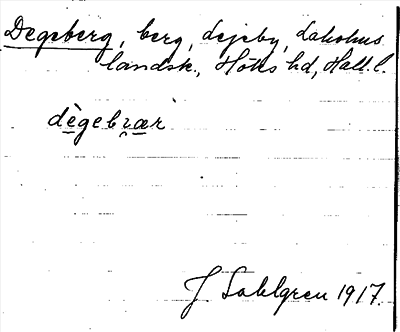 Degeberg, berg, Lejeby, Laholms
landsk., Höks hd, Hall. l.
dègebrær
J. Sahlgren 1917.